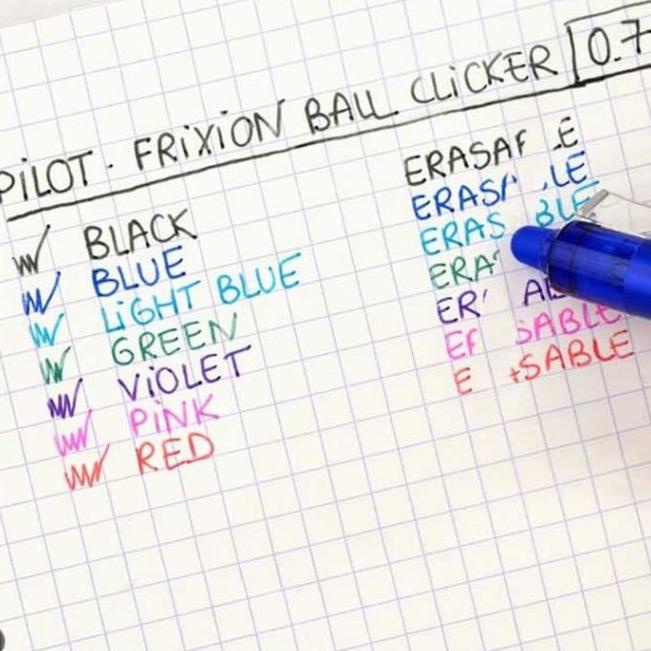 PiLOT · FRiXiON BALL CLiCKER 0.7
BLACK
BLUE
LiGHT BLUE
GREEN
ViOLET
PiNK
RED
ERASA E
ERAS LE
ERAS BLE
ERA
ER AB
E SABLE
E SABLE